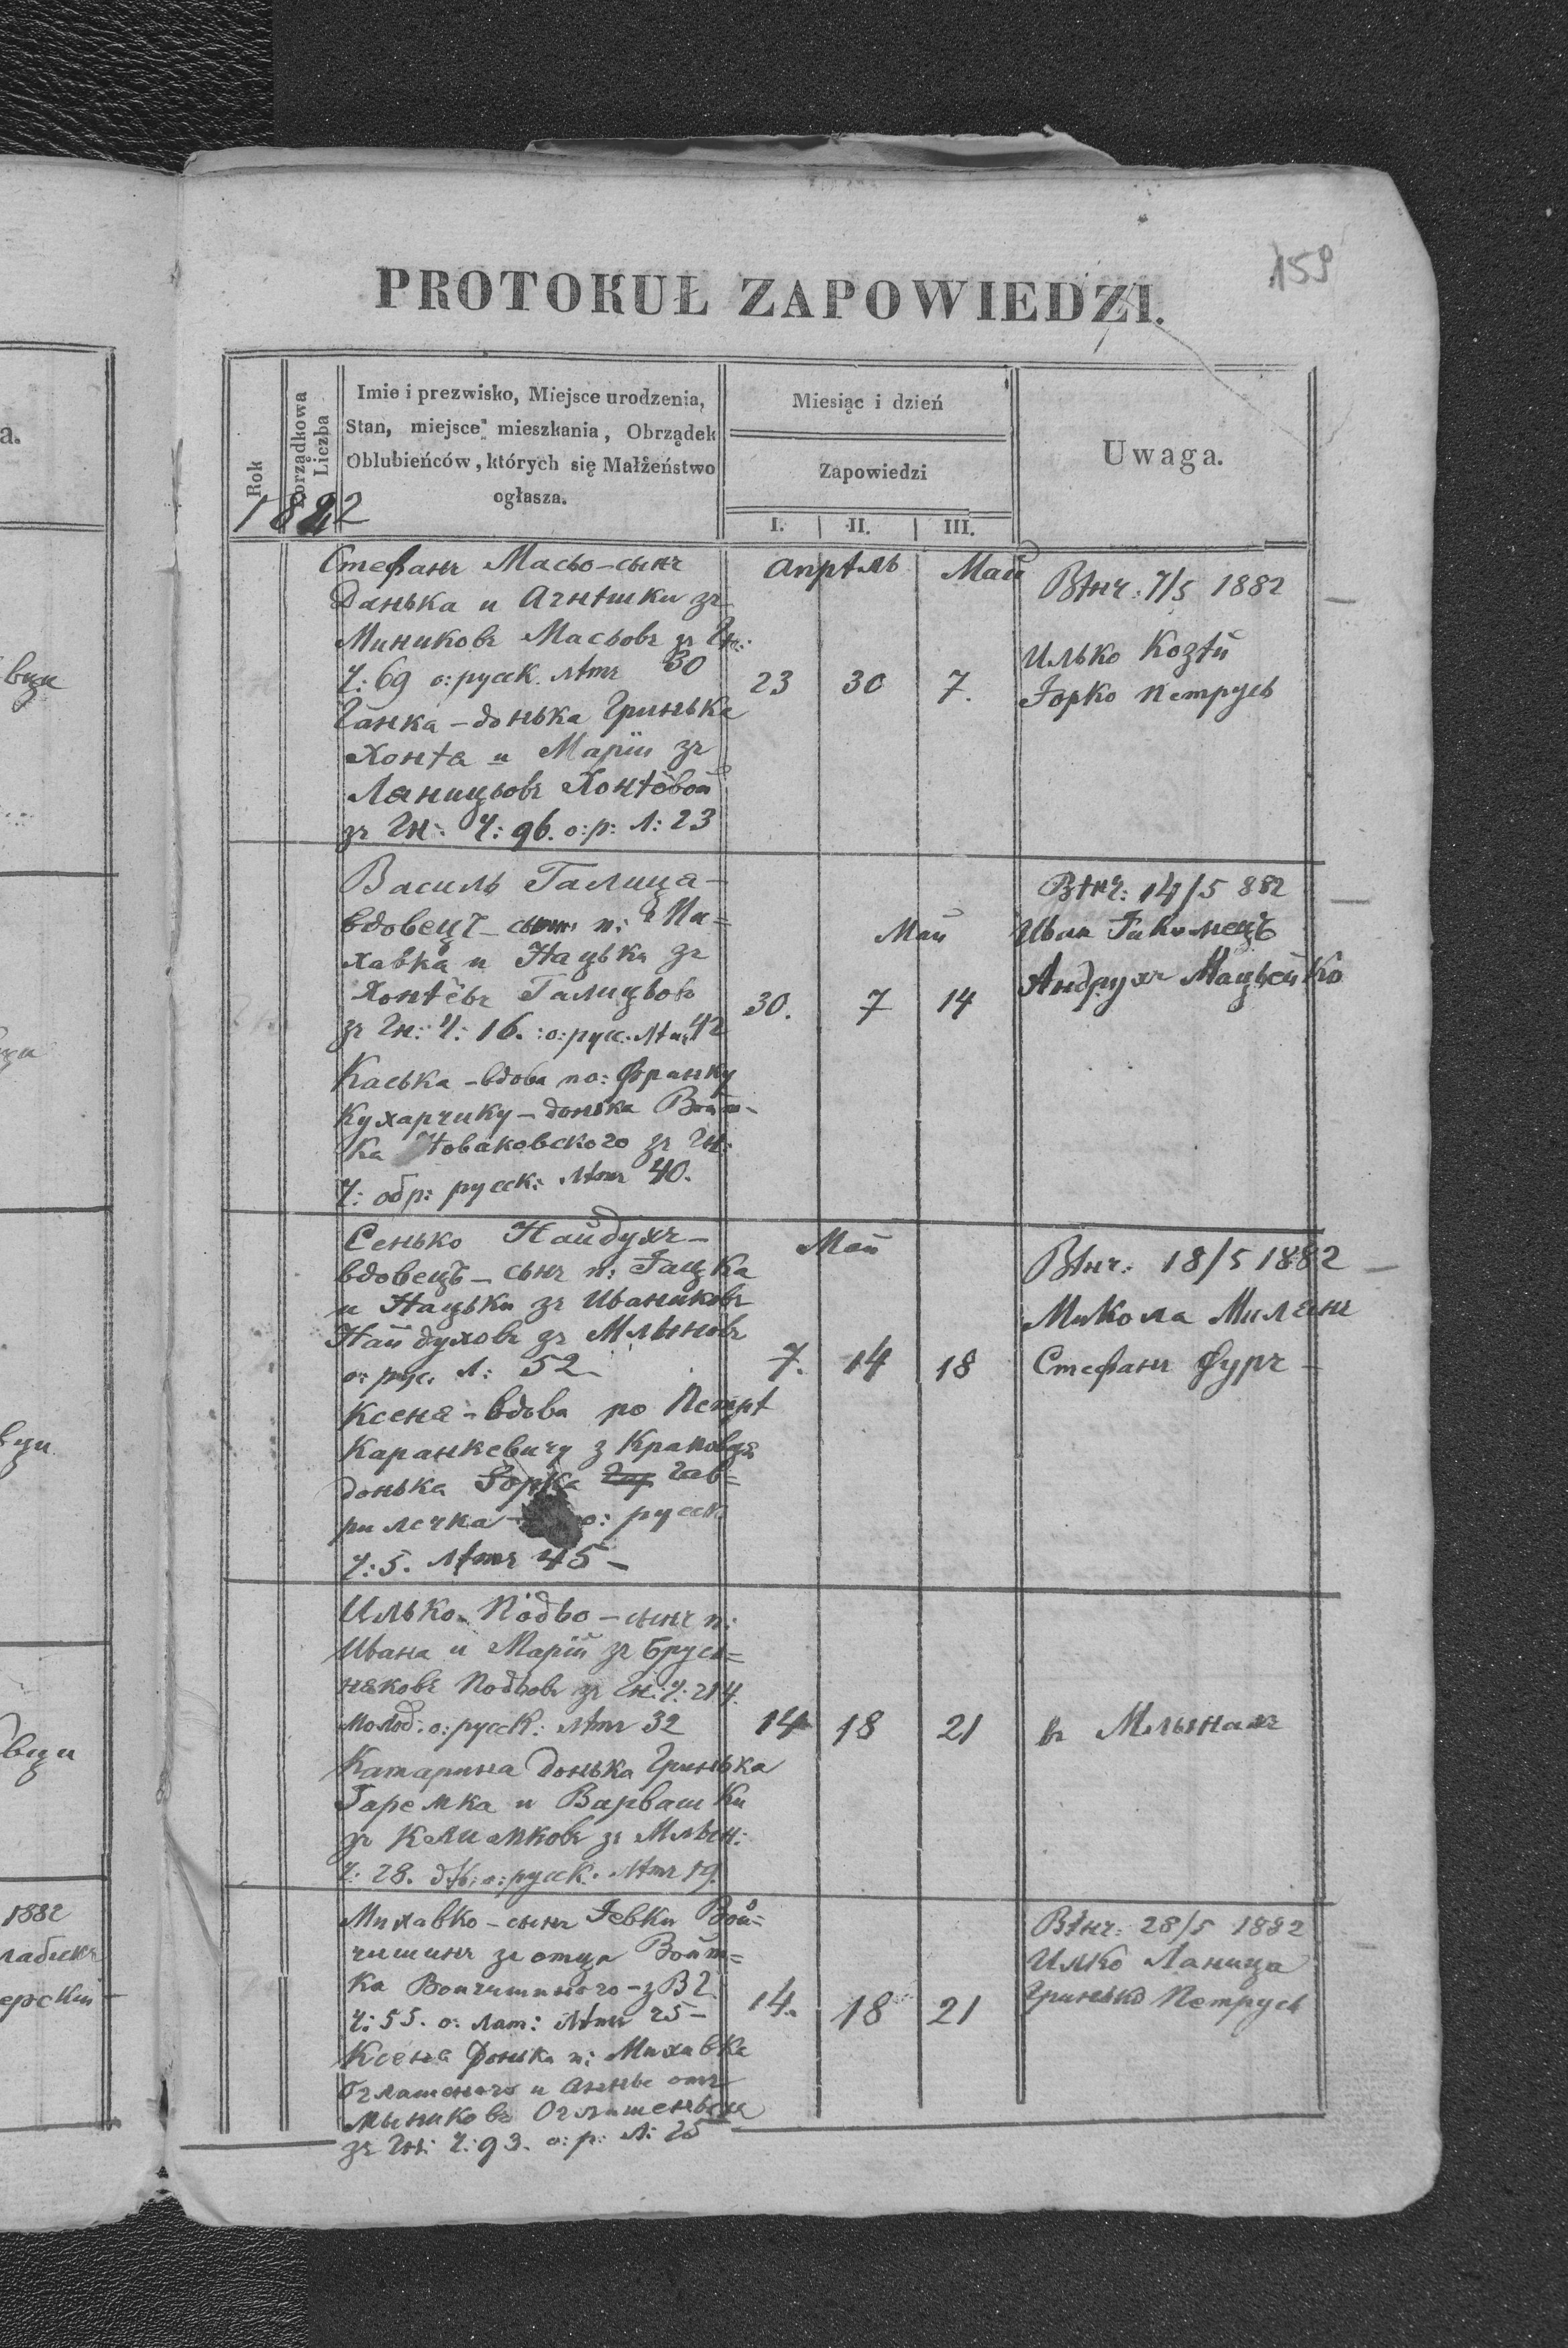 159
PROTOKUŁ ZAPOWIEDZI.
Rok
Porządkowa Liczba
Imie i prezwisko, Miejsce urodzenia,
Stan, miejsce mieszkania, Obrządek
Oblubieńców, których się Małżeństwo
ogłasza.
Miesiąc i dzień
Zapowiedzi
I. II. III.
Uwaga.
1882
Стефанъ Масьо - сынъ
Данька и Агнѣшки зъ
Миниковъ Масьовъ зъ Гн:
Ч: 69 о: русск. лѣтъ 30
Ганка - донька Гринька
Хонта и Маріи зъ
Ланицьовъ Хонтёвой
зъ Гн: Ч: 96. о: р: л: 23
Апрѣль Май
23 30 7.
Вѣнч: 7/5 1882
Илько Козѣй
Юрко Петрусь
Василь Галица -
вдовецъ - сынъ п: Ми=
хавка и Нацьки зъ
Хонтёвъ Галицьовъ
зъ Гн: Ч: 16. о: русс. лѣтъ 42
Каська - вдова по: Франку
Кухарчику - донька Войт-
ка Новаковского зъ Гн:
Ч: обр: русск: лѣтъ 40.
Май
30. 7 14
Вѣнч: 14/5 882
Иван
Андрухъ Мацьейко
Сенько Найдухъ -
вдовецъ - сынъ п: Яцка
и Нацьки зъ Иваниковъ
Найдуховъ зъ Млыновъ
о: рус. л: 52
Ксеня - вдова по Петрѣ
Каранкевичу з Краковця
донька Юрка Гав=
рилечка о: русск
Ч: 5. лѣтъ 45 -
Май
7. 14 18
Вѣнч: 18/5 1882
Микола Милянъ
Стефанъ Фуръ -
Илько Подьо - сынъ п:
Ивана и Маріи зъ Брус=
няковъ Подьовъ зъ Гн: Ч: 214.
молод. о: русск: лѣтъ 32
Катарина донька Гринька
Яремка и Варвашки
зъ зъ Млын:
Ч: 28. дѣв: о: русск. лѣтъ 19.
14 18 21
въ Млынахъ
Михавко - сынъ Евки Вой=
чишинъ зъ отца Войт=
ка Войчишиного - з В Г
Ч: 55. о: лат: лѣтъ 25 -
Ксеня Донька п: Михавка
и Анны отъ
Мыниковъ
зъ Гн: Ч: 93. о: р: л: 25
14. 18 21
Вѣнч: 28/5 1882
Илко Ланица
Гринько Петрусь
1882